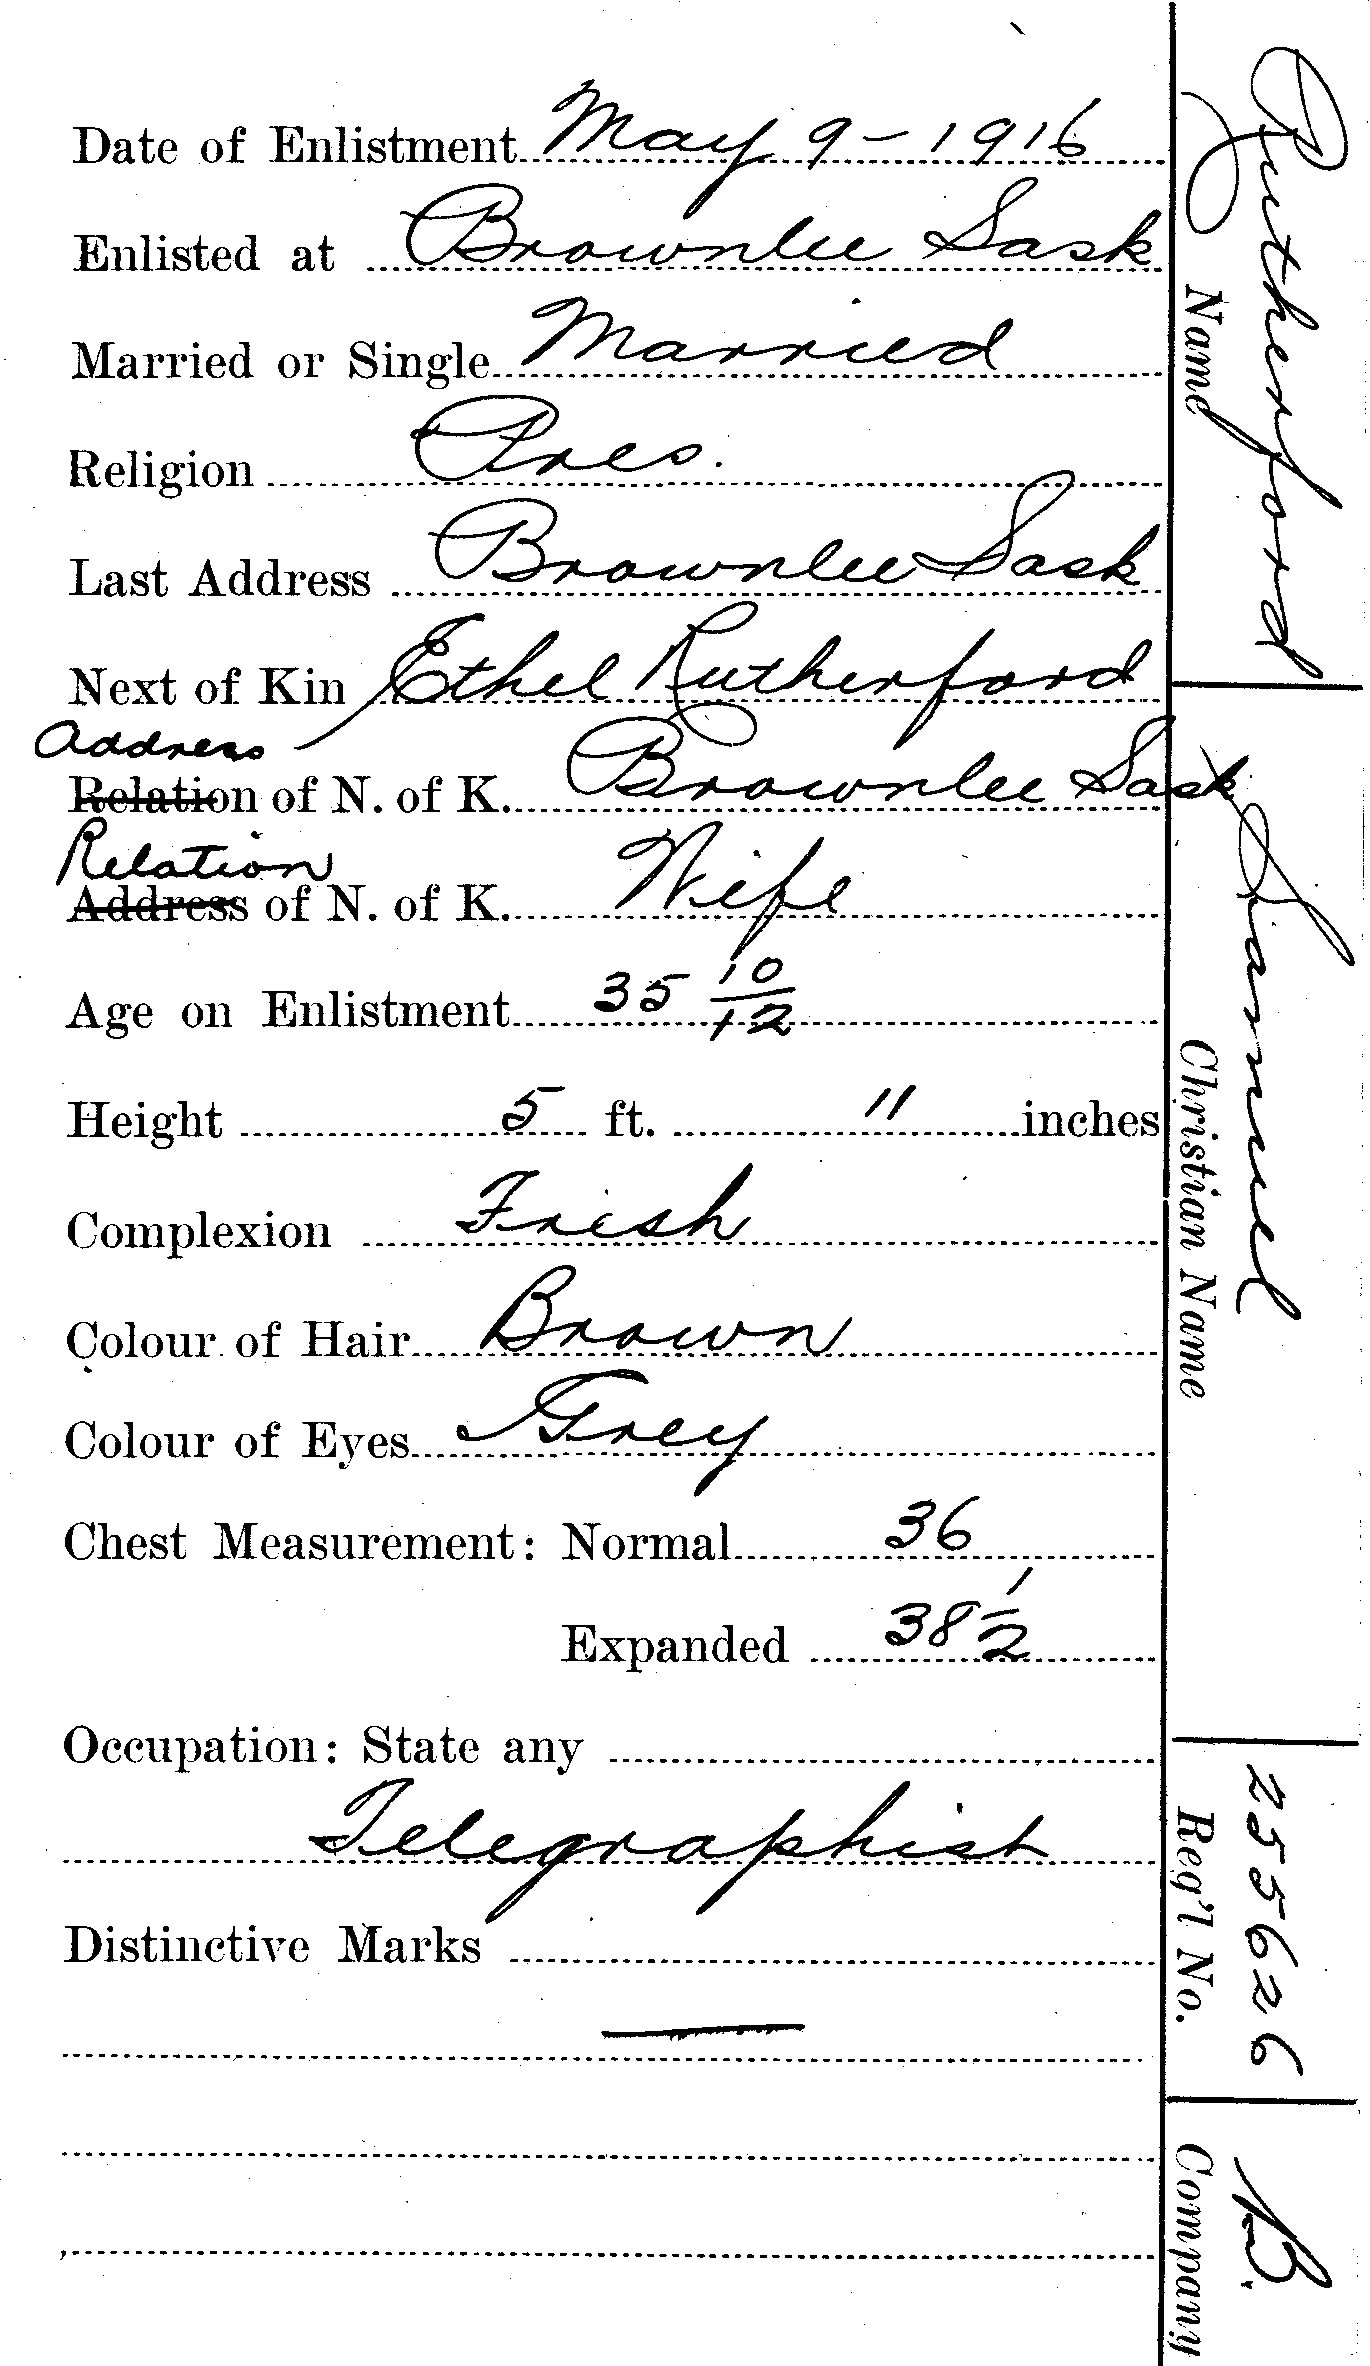 Date of Enlistment May 9 - 1916
Enlisted at Brownlee Sask
Married or Single Married
Religion Pres.
Last Address Brownlee Sask
Next of Kin Ethel Rutherford
Address
Relation of N. of K. Brownlee Sask
Relation
Address of N. of K. Wife
Age on Enlistment 35 10/12
Height 5 ft. 11 inches
Complexion Fresh
Colour of Hair Brown
Colour of Eyes Grey
Chest Measurement: Normal 36
Expanded 38 1/2
Occupation: State any
Telegraphist
Distinctive Marks
—
Rutherford
Name
Samuel
Christian Name
255626
Reg'l No.
B.
Company